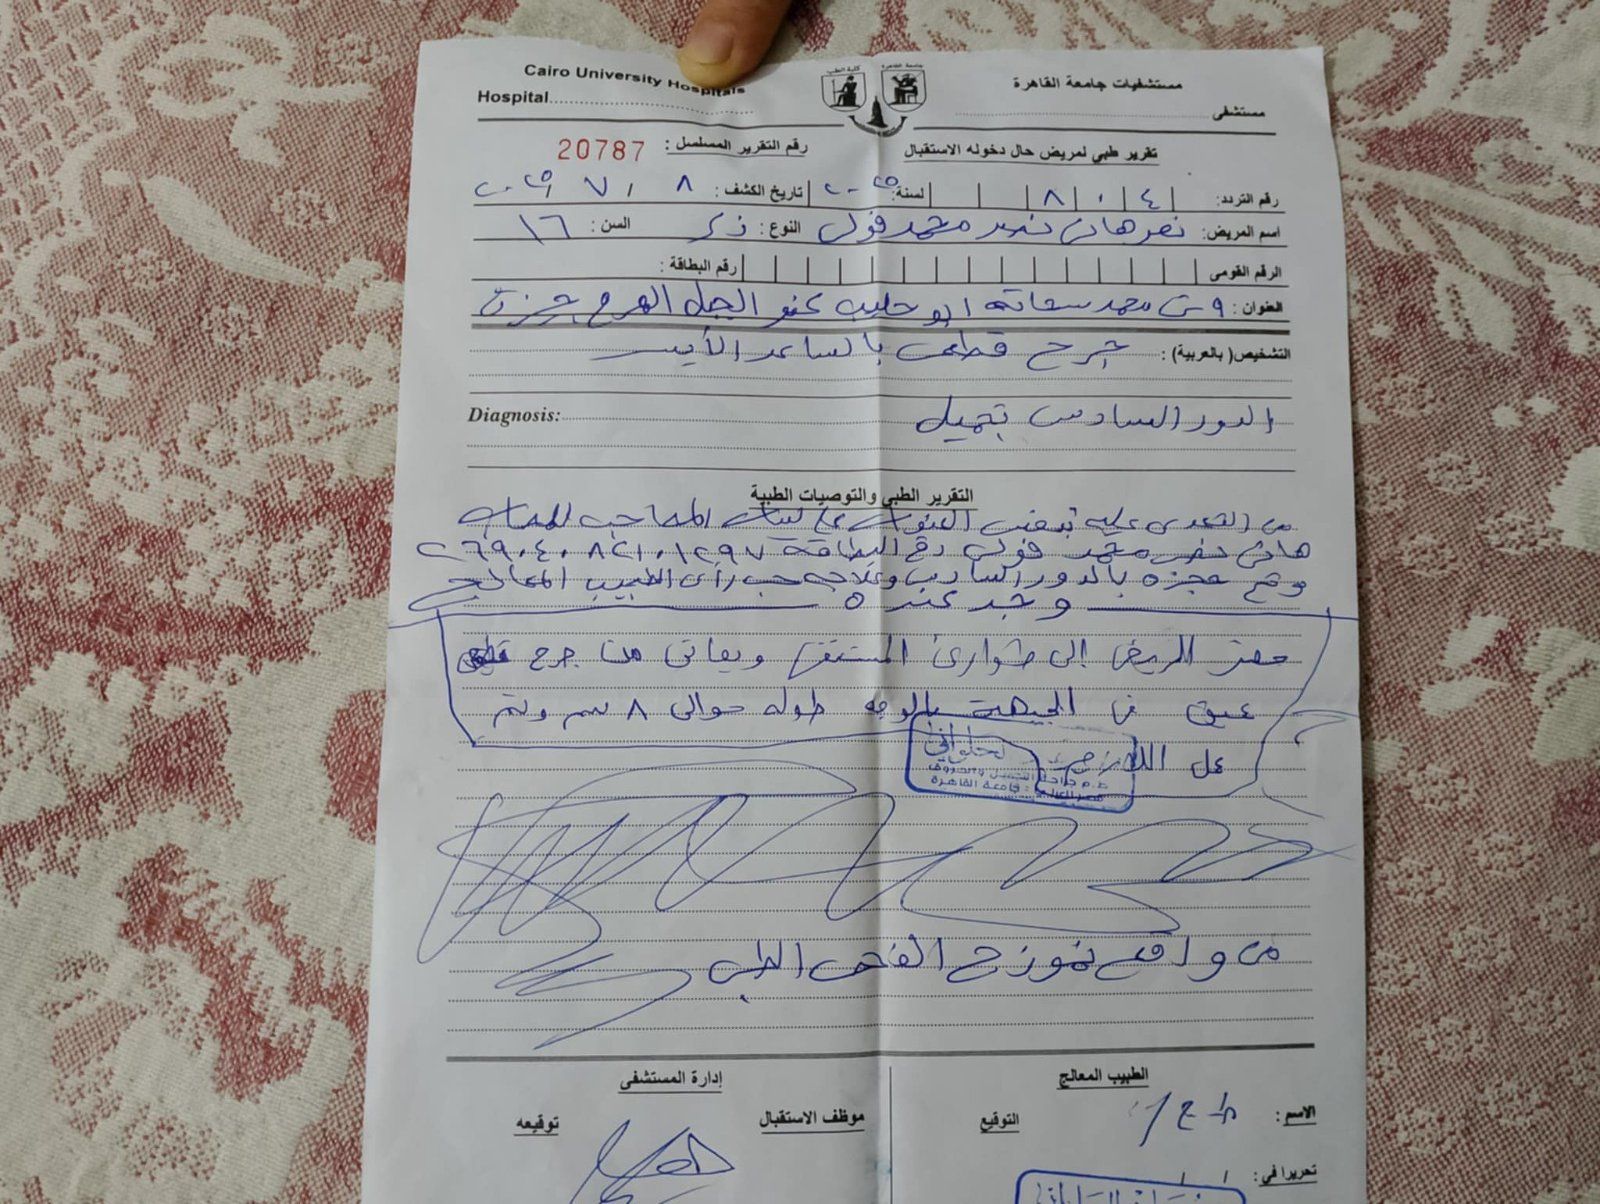 Cairo University Hospitals
مستشفيات جامعة القاهرة
كلية الطب
جامعة القاهرة
Hospital
مستشفى
رقم التقرير المسلسل : 20787
تقرير طبي لمريض حال دخوله الاستقبال
رقم التردد: ٨٠٤ لسنة: ٢٠٢٥ تاريخ الكشف : ٨ / ٧ / ٢٠٢٥
اسم المريض: نصر هانى نصر محمد فولى النوع : ذكر السن : ١٦
الرقم القومى رقم البطاقة :
العنوان : ٩ ش محمد سعاته ابو حليب الجبل الهرم جيزة
التشخيص( بالعربية) : جرح قطعى بالساعد الأيسر
Diagnosis: الدور السادس تجميل
التقرير الطبى والتوصيات الطبية
من التعدى عليه ببعض المصاحب للمصاب
هانى نصر محمد فولى رقم البطاقة ٢٦٩٠٤٠٨٢١٠١٢٩٧
وتم حجزه بالدور السادس وعلاجه حسب رأى الطبيب المعالج
وجد عنده
حضر المريض إلى طوارئ المستشفى ويعانى من جرح قطعى
عميق فى الجبهة بالوجه طوله حوالى ٨ سم وتم
عمل اللازم
جراحة التجميل والحروق
قصر العينى - جامعة القاهرة
من واقع نموذج الفحص الطبى
إدارة المستشفى
الطبيب المعالج
موظف الاستقبال توقيعه
الاسم : ط ح التوقيع
تحريرا فى :